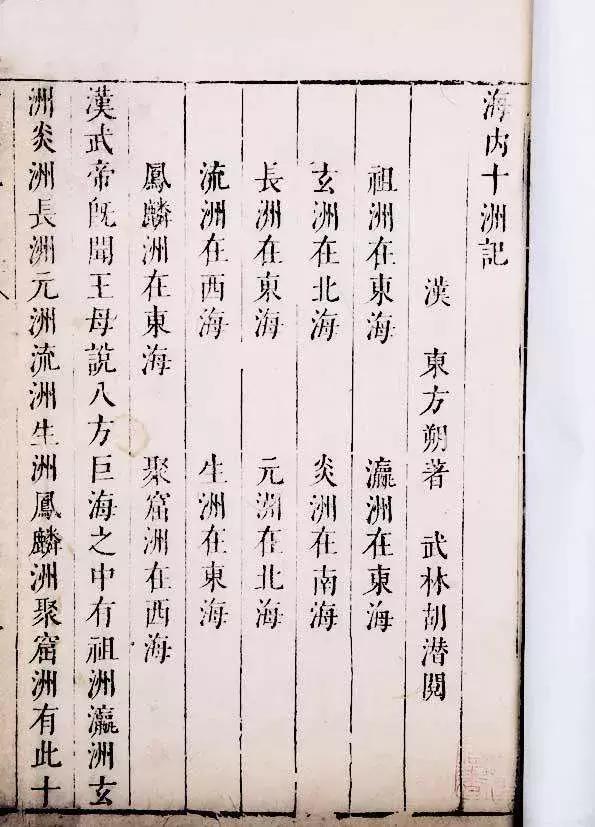 海内十洲記
漢 東方朔著 武林胡潜閱
祖洲在東海 瀛洲在東海
玄洲在北海 炎洲在南海
長洲在東海 元洲在北海
流洲在西海 生洲在東海
鳳麟洲在東海 聚窟洲在西海
漢武帝旣聞王母說八方巨海之中有祖洲瀛洲玄
洲炎洲長洲元洲流洲生洲鳳麟洲聚窟洲有此十